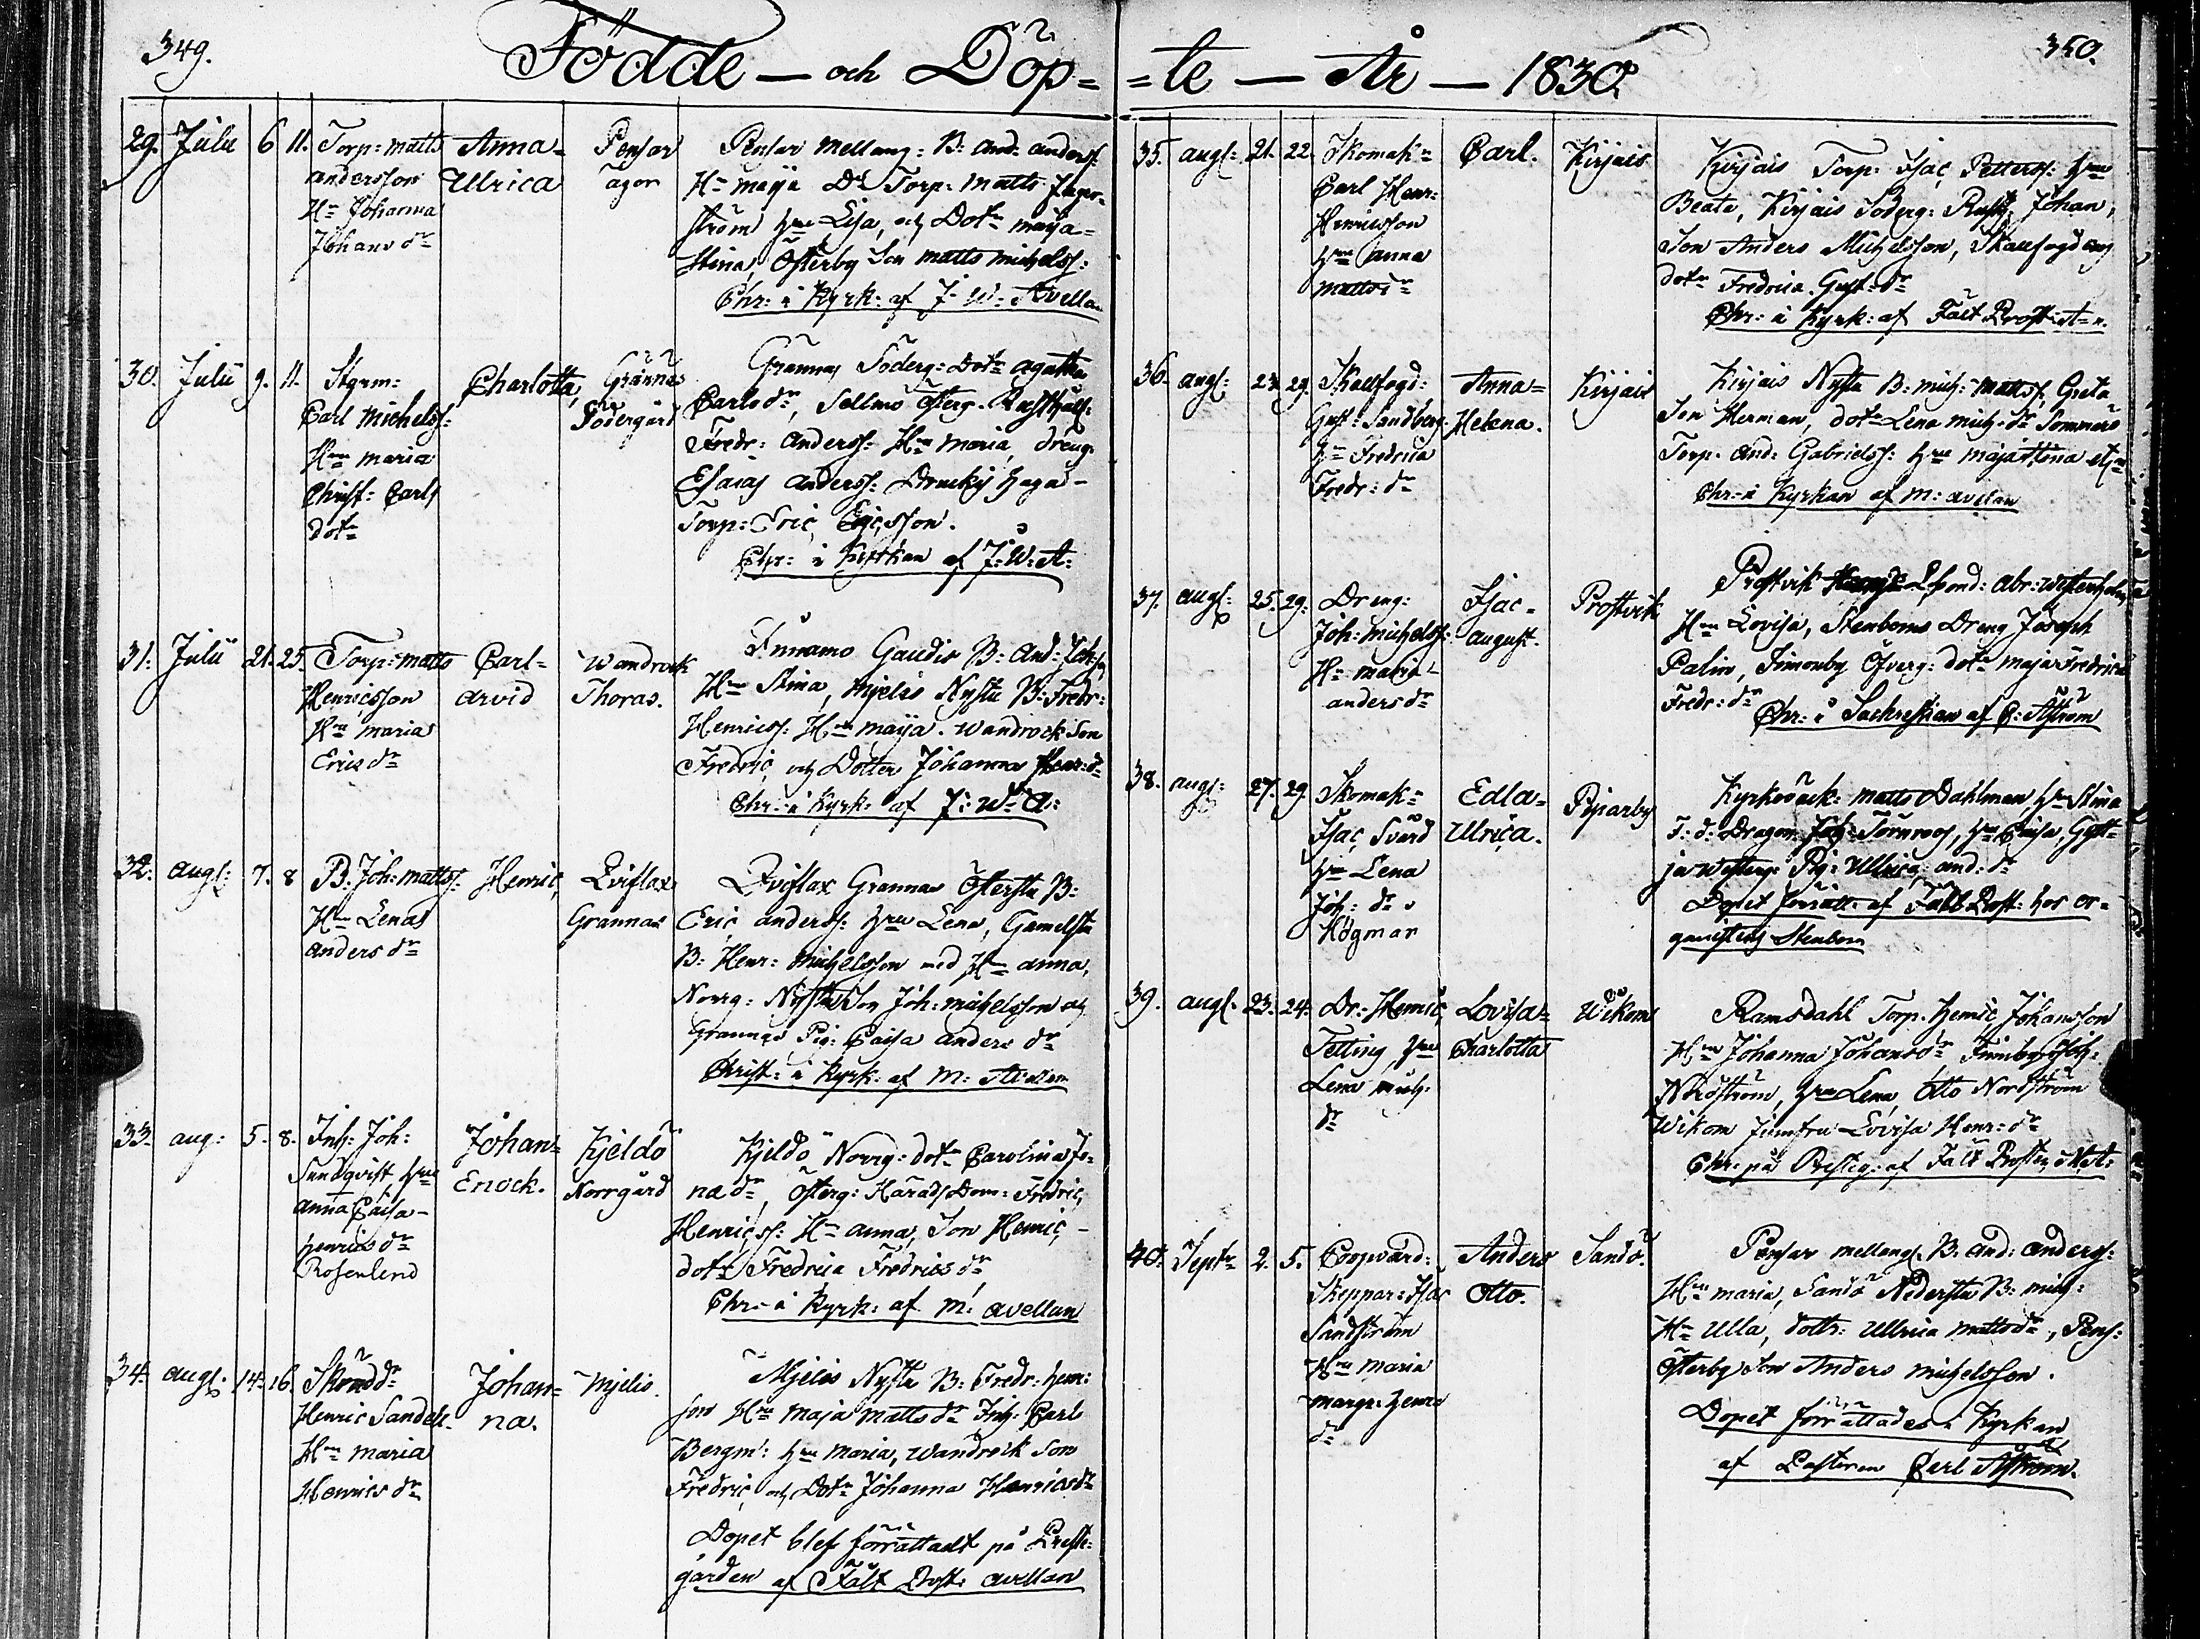 349.
Födde — och Döp=
29. Julii 6 11. Torp: Matts Andersson Hu Johanna Johans dr
Anna= Ulrica
Pensar
Pensar Mellang: B: And: Anderss:
Hu Maija Dr Torp: Matts Lager=
ström Hru Lisa, och Dotr Maija=
Stina, Österby Son Matts Michelss:
Chr: i Kyrk: af J. W: Avellan
30. Julii 9. 11. Styrm: Carl Michelss: Hru Maria Christ: Carls dotr
Charlotta,
Grännäs Södergård
Grännäs Söderg: Dotr Agatha
Carlsdr, Sellmo Österg.
Fredr: Anderss: Hru Maria, Dreng
Esaias Anderss:
Torp: Eric Ericsson.
Chr: i Kyrkan af J: W: A:
31. Julii 21. 25. Torp: Matts Henricsson Hru Maria Erics dr
Carl= Arvid
Wandrock Thoras.
Finnamo Gaudis B: And:
Hru Stina, Mjelis Nystu B: Fredr:
Henricss: Hru Maija. Wandrock Son
Fredric, och Dotter Johanna Henr: dr
Chr: i Kyrk: af J: W: A:
32. Augs: 7. 8 B. Joh: Mattss: Hru Lena Anders dr
Henric,
Qviflax Grannas
Qviflax Grannas Österstu B:
Eric Anderss: Hru Lena, Gamelstu
B: Henr: Michelsson med Hu Anna,
Norrg: Nystu Son Joh: Michelsson och
Grannas Pig: Caisa Anders dr
Christ: i Kyrk: af M: Avellan
33. Aug: 5. 8. Inh: Joh: Sundqvist Hru Anna Caisa— Henrics dr Rosenlind
Johan= Enock.
Kjeldö Norrgård
Kjeldö Norrg: dotr Carolina Jo=
na dr, Österg: Härads Dom: Fredric,
Henricss: Hu Anna, Son Henric, —
dotr Fredrica Fredrics dr
Chr: i Kyrk: af M: Avellan
34. Augs: 14. 16. Henric Sandell. Hru Maria Henrics dr
Johan= na.
Mjelis.
Mjelis Nystu B: Fredr: Henr:
son Hru Maja Matts dr Inh: Carl
Bergm: Hru Maria, Wandrock Son
Fredric, och Dotr Johanna Henricsdr
Dopet blef förrättadt på Preste=
gården af Fält Prost: Avellan
350.
=te — År — 1830.
35. Augs: 21. 22. Skomakr Carl Henr: Henricsson Hru Anna Mattsdr
Carl.
Kirjais
Kirjais Torp: Isac, Petterss: Hru
Beata, Kirjais Söderg: Rusth: Johan,
Son Anders Michelsson, Skallfogd
dotr Fredrica Gust: dr
Chr: i Kyrk: af Fält Prost: A—n.
36. Augs: 23. 29. Skallfogd: Gust: Sandberg. Hru Fredrica Fredr: dr
Anna= Helena.
Kirjais
Kirjais Nystu B: Mich: Mattss, Greta
Son Herman, dotr Lena Mich: dr Sommarö
Torp. And: Gabrielss: Hru Majastina
Chr: i Kyrkan af M: Avellan
37. Augs: 25. 29. Dreng: Joh: Michelss: Hu Maria Anders dr
Isac= August.
Prostvik
Prostvik Abr: Westerholm
Hru Lovisa, Stenboms Dreng Joseph
Palin, Simonby Öfverg: dotr Maja Fredrica
Fredr: dr
Chr: i Sackrestian af C: Åström
38. Augs: 27. 29. Skomakr Isac, Svärd Hru Lena Joh: dr Högman
Edla= Ulrica.
Pijparby
Matts Dahlman Hru Stina
F: d: Dragon Joh: Törnroos, Hru Caisa, Gytt=
ja Westerg: Pig: Ullrica And: dr
Dopet förrätt: af Fält Prost: hos or=
ganisten Stenbom
39. Augs: 23. 24. Dr: Henric, Telling, Hru Lena Mich: dr
Lovisa= Charlotta
Wikom
Ramsdahl Torp. Henric, Johansson
Hru Johanna Johansdr Finnby Joh:
Nordström, Hru Lena, Otto Nordström
Wikom Jumfru Lovisa Henr: dr
Chr: på Prestg: af Fält Prosten
40. Septr 2. 5. Coopvard: Skeppar: Isac Sandström Hru Maria Margr: Henr: dr
Anders Otto.
Sandö.
Pensar Mellang: B: And: Anderss:
Hru Maria, Sandö Nederstu B: Mich:
Hu Ulla, dottr: Ullrica Matts dr, Pens:
Österby Son Anders Michelsson.
Dopet förrättades i Kyrkan
af Pastoren Carl Åström.